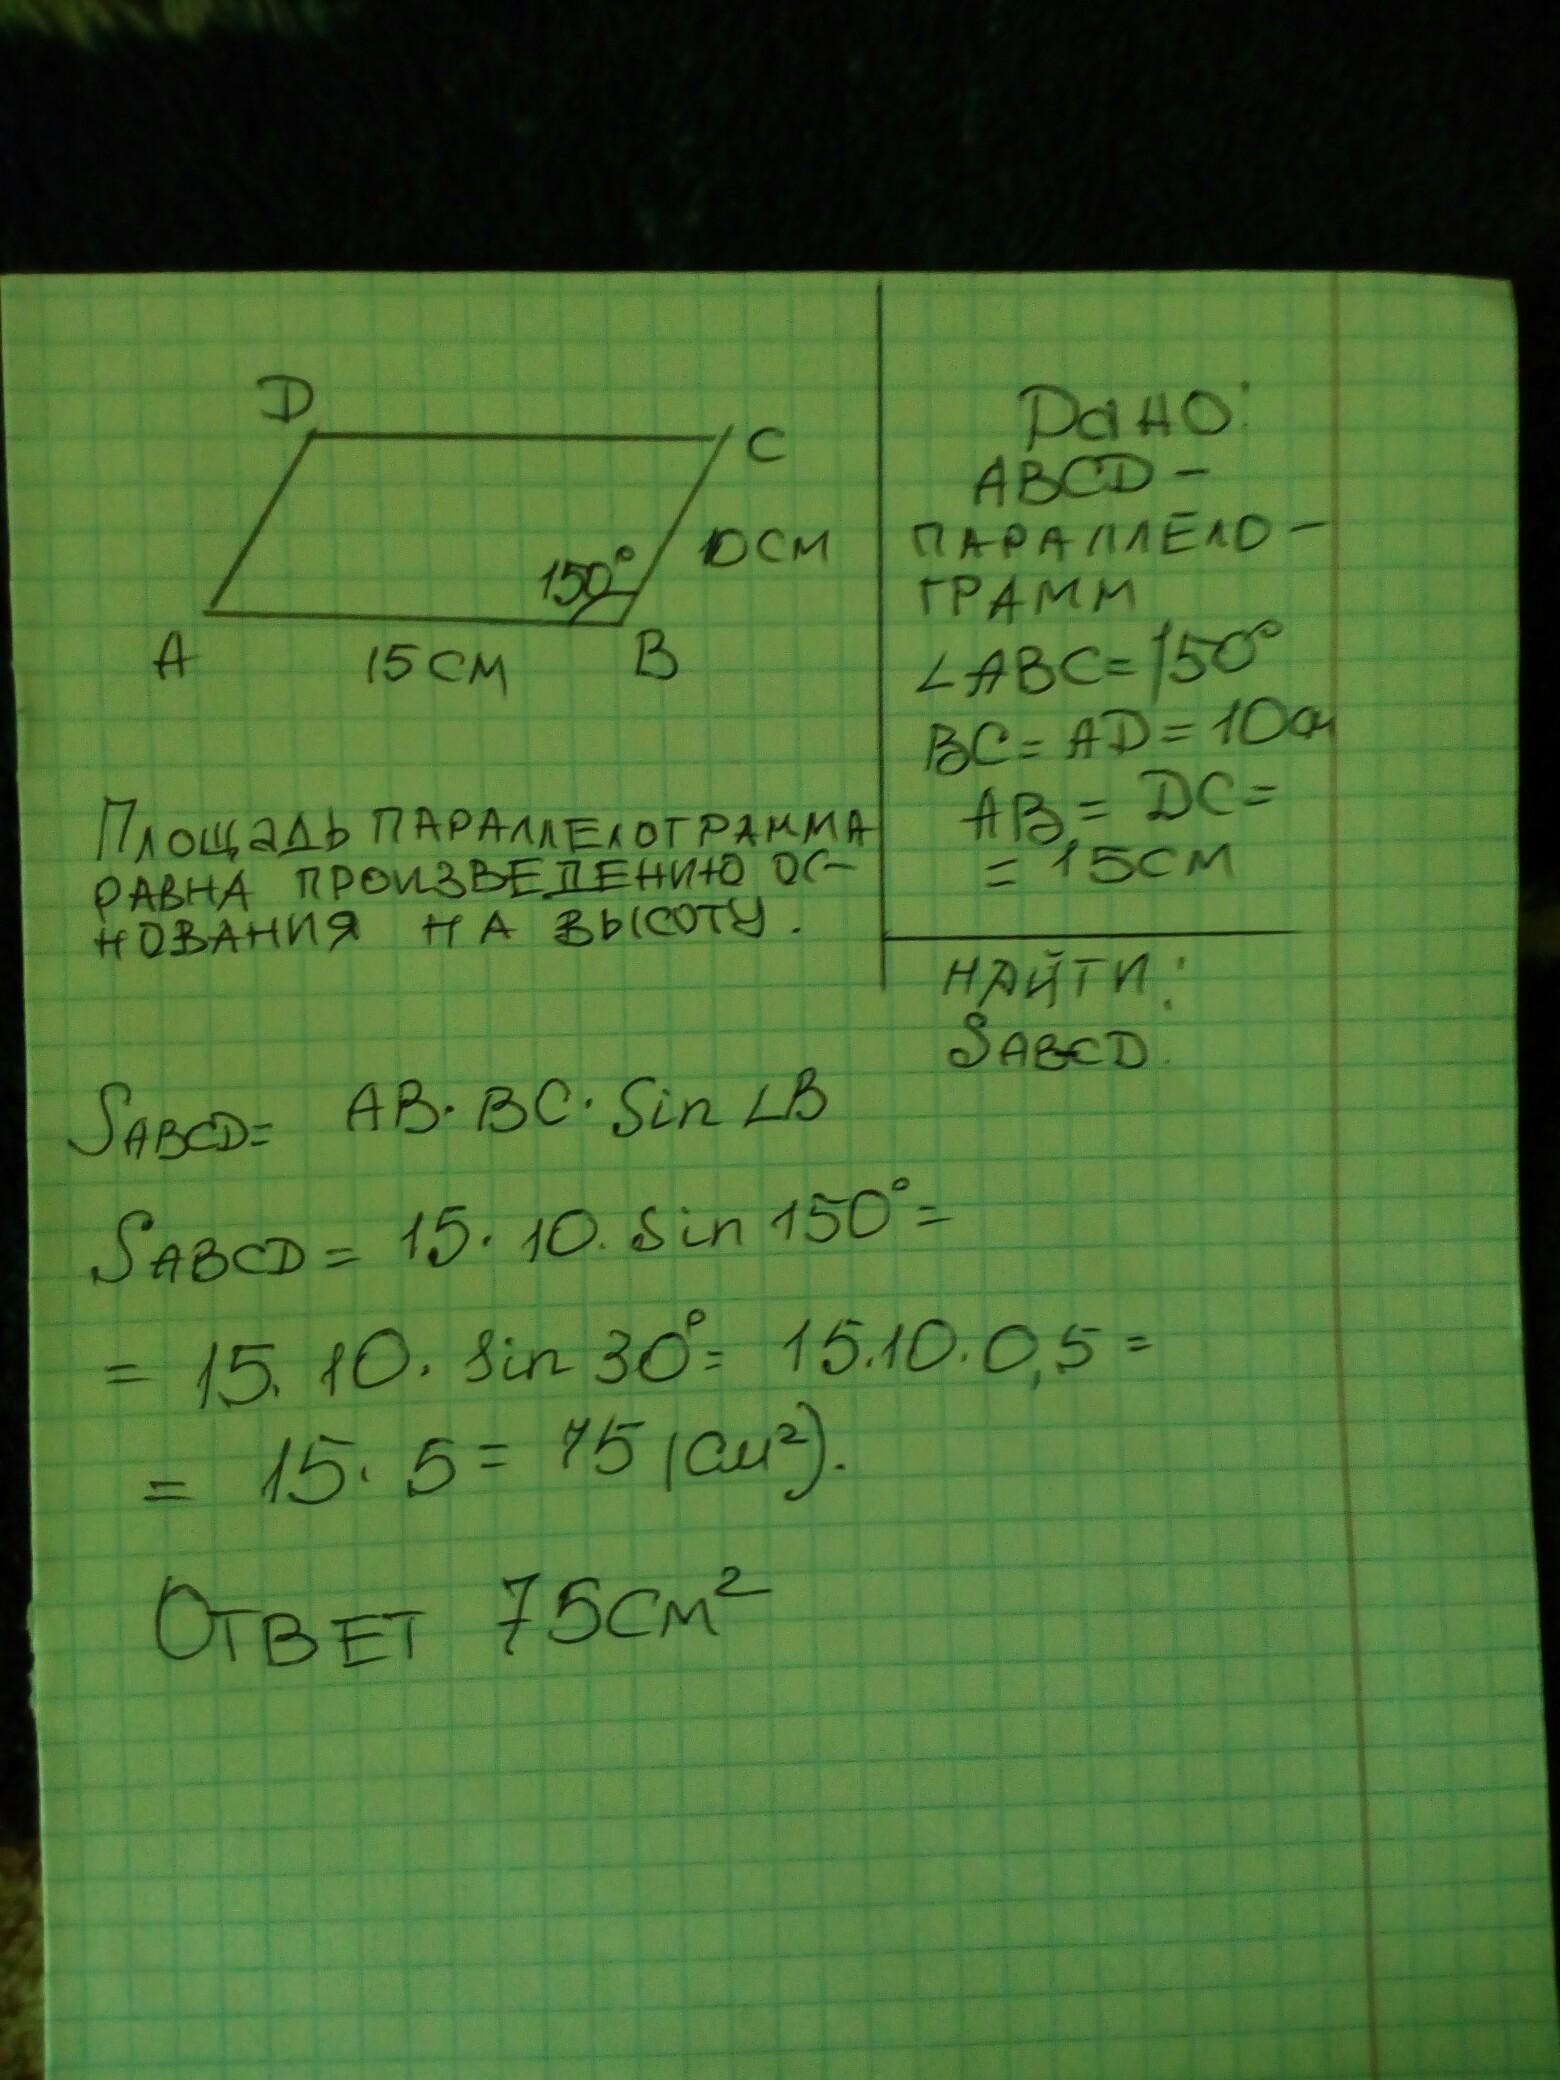 D
C
10см
150°
A
15см
B
Дано:
ABCD –
ПАРАЛЛЕЛО –
ГРАММ
∠ABC = 150°
BC = AD = 10см
AB = DC =
= 15см
НАЙТИ:
SABCD.
Площадь ПАРАЛЛЕЛОГРАММА
РАВНА ПРОИЗВЕДЕНИЮ ОС-
НОВАНИЯ НА ВЫСОТУ.
SABCD = AB · BC · Sin ∠B
SABCD = 15 · 10 · Sin 150° =
= 15 · 10 · Sin 30° = 15 · 10 · 0,5 =
= 15 · 5 = 75 (см²).
Ответ 75см²